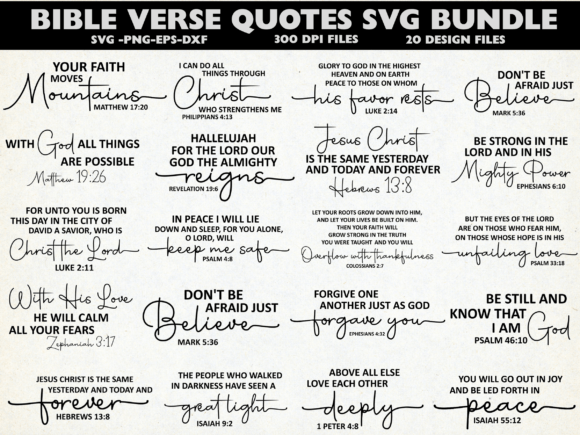 BIBLE VERSE QUOTES SVG BUNDLE
SVG -PNG-EPS-DXF
300 DPI FILES
20 DESIGN FILES
YOUR FAITH
MOVES
Mountains
MATTHEW 17:20
I CAN DO ALL
THINGS THROUGH
Christ
WHO STRENGTHENS ME
PHILIPPIANS 4:13
GLORY TO GOD IN THE HIGHEST
HEAVEN AND ON EARTH
PEACE TO THOSE ON WHOM
his favor rests
LUKE 2:14
DON'T BE
AFRAID JUST
Believe
MARK 5:36
WITH God ALL THINGS
ARE POSSIBLE
Matthew 19:26
HALLELUJAH
FOR THE LORD OUR
GOD THE ALMIGHTY
reigns
REVELATION 19:6
Jesus Christ
IS THE SAME YESTERDAY
AND TODAY AND FOREVER
Hebrews 13:8
BE STRONG IN THE
LORD AND IN HIS
Mighty Power
EPHESIANS 6:10
FOR UNTO YOU IS BORN
THIS DAY IN THE CITY OF
DAVID A SAVIOR, WHO IS
Christ the Lord
LUKE 2:11
IN PEACE I WILL LIE
DOWN AND SLEEP, FOR YOU ALONE,
O LORD, WILL
keep me safe
PSALM 4:8
LET YOUR ROOTS GROW DOWN INTO HIM,
AND LET YOUR LIVES BE BUILT ON HIM.
THEN YOUR FAITH WILL
GROW STRONG IN THE TRUTH
YOU WERE TAUGHT AND YOU WILL
Overflow with thankfulness
COLOSSIANS 2:7
BUT THE EYES OF THE LORD
ARE ON THOSE WHO FEAR HIM,
ON THOSE WHOSE HOPE IS IN HIS
unfailing love
PSALM 33:18
With His Love
HE WILL CALM
ALL YOUR FEARS
Zephaniah 3:17
DON'T BE
AFRAID JUST
Believe
MARK 5:36
FORGIVE ONE
ANOTHER JUST AS GOD
forgave you
EPHESIANS 4:32
BE STILL AND
KNOW THAT
I AM God
PSALM 46:10
JESUS CHRIST IS THE SAME
YESTERDAY AND TODAY AND
forever
HEBREWS 13:8
THE PEOPLE WHO WALKED
IN DARKNESS HAVE SEEN A
great light
ISAIAH 9:2
ABOVE ALL ELSE
LOVE EACH OTHER
deeply
1 PETER 4:8
YOU WILL GO OUT IN JOY
AND BE LED FORTH IN
peace
ISAIAH 55:12